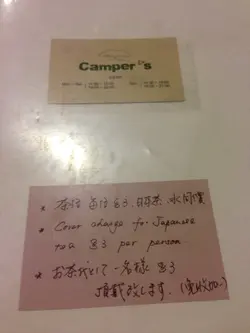 Camper's
* 茶位每位$3,日本茶.水同價
* Cover charge for Japanese
tea $3 per person.
* お茶代として一名様 $3
頂戴致します. (免收加一)